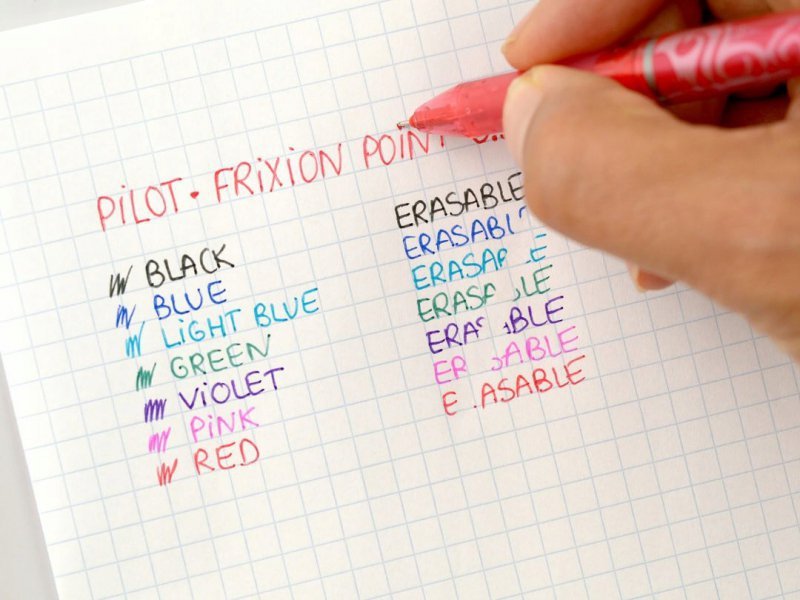 PILOT · FRIXION POINT
BLACK
BLUE
LIGHT BLUE
GREEN
VIOLET
PINK
RED
ERASABLE
ERASABL
ERASA E
ERASA LE
ERA BLE
ER ABLE
E ASABLE